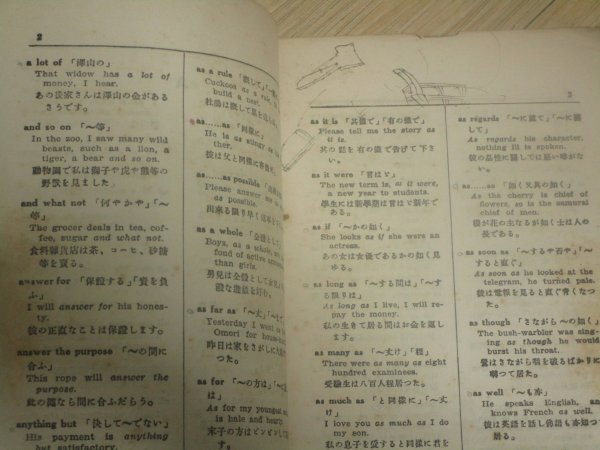 2
a lot of 「澤山の」
That widow has a lot of
money, I hear.
あの後家さんは澤山の金がある
さうです。
and so on 「〜等」
In the zoo, I saw many wild
beasts, such as a lion, a
tiger, a bear and so on.
動物園で私は獅子や虎や熊等の
野獸を見ました
and what not 「何やかや」「〜
等」
The grocer deals in tea, cof-
fee, sugar and what not.
食料雜貨店は茶、コーヒ、砂糖
等を賣る。
answer for 「保證する」「責を負
ふ」
I will answer for his hones-
ty.
彼の正直なことは保證します。
answer the purpose 「〜の間に
合ふ」
This rope will answer the
purpose.
此の繩なら間に合ふだらう。
anything but 「決して〜でない」
His payment is anything
but satisfactory.
as a rule 「概して」
Cuckoos as a rule
build a nest.
杜鵑は概して巢を
as......as 「同樣に」
He is as stingy as
her.
彼は父と同樣に
as......as possible
Please answer me as
as possible.
出來る限り早く
as a whole 「全體として」
Boys, as a whole,
fond of active
than girls.
男兒は全體として女兒
as far as 「〜丈」
Yesterday I went as
Omori for
昨日は家をさがしに大森
つた。
as for 「〜の方は」
As for my youngest
is hale and
末子の方はピンピンし
3
as it is 「其儘で」「有の儘で」
Please tell me the story as
it is.
其の話を有の儘で告げて下さ
い。
as it were 「言はゞ」
The new term is, as it were,
a new year to students.
學生には新學期は言はゞ新年で
ある。
as if 「〜かの如く」
She looks as if she were an
actress.
あの女は女優であるかの如く見
ゆる。
as long as 「〜する間は」「〜す
る限りは」
As long as I live, I will re-
pay the money.
私の生きて居る間はお金を返し
ます。
as many as 「〜丈け」「程」
There were as many as eight
hundred examinees.
受驗生は八百人程居つた。
as much as 「と同樣に」「〜丈
け」
I love you as much as I do
my son.
私の息子を愛すると同樣に君を
as regards 「〜に就て」「〜に關し
て」
As regards his character,
nothing ill is spoken.
彼の品性に關しては惡い噂がな
い。
as......so...... 「如く又其の如く」
As the cherry is chief of
flowers, so is the samurai
chief of men.
櫻が花の主なるが如く士は人の
長である。
as soon as 「〜するや否や」「〜
すると直ぐ」
As soon as he looked at the
telegram, he turned pale.
彼は電報を見ると直ぐ青くなつ
た。
as though 「さながら〜の如く」
The bush-warbler was sing-
ing as though he would
burst his throat.
鶯はさながら咽を破るばかりに
囀つて居た。
as well 「〜も亦」
He speaks English, and
knows French as well.
彼は英語を話し佛語も亦知つて
居る。